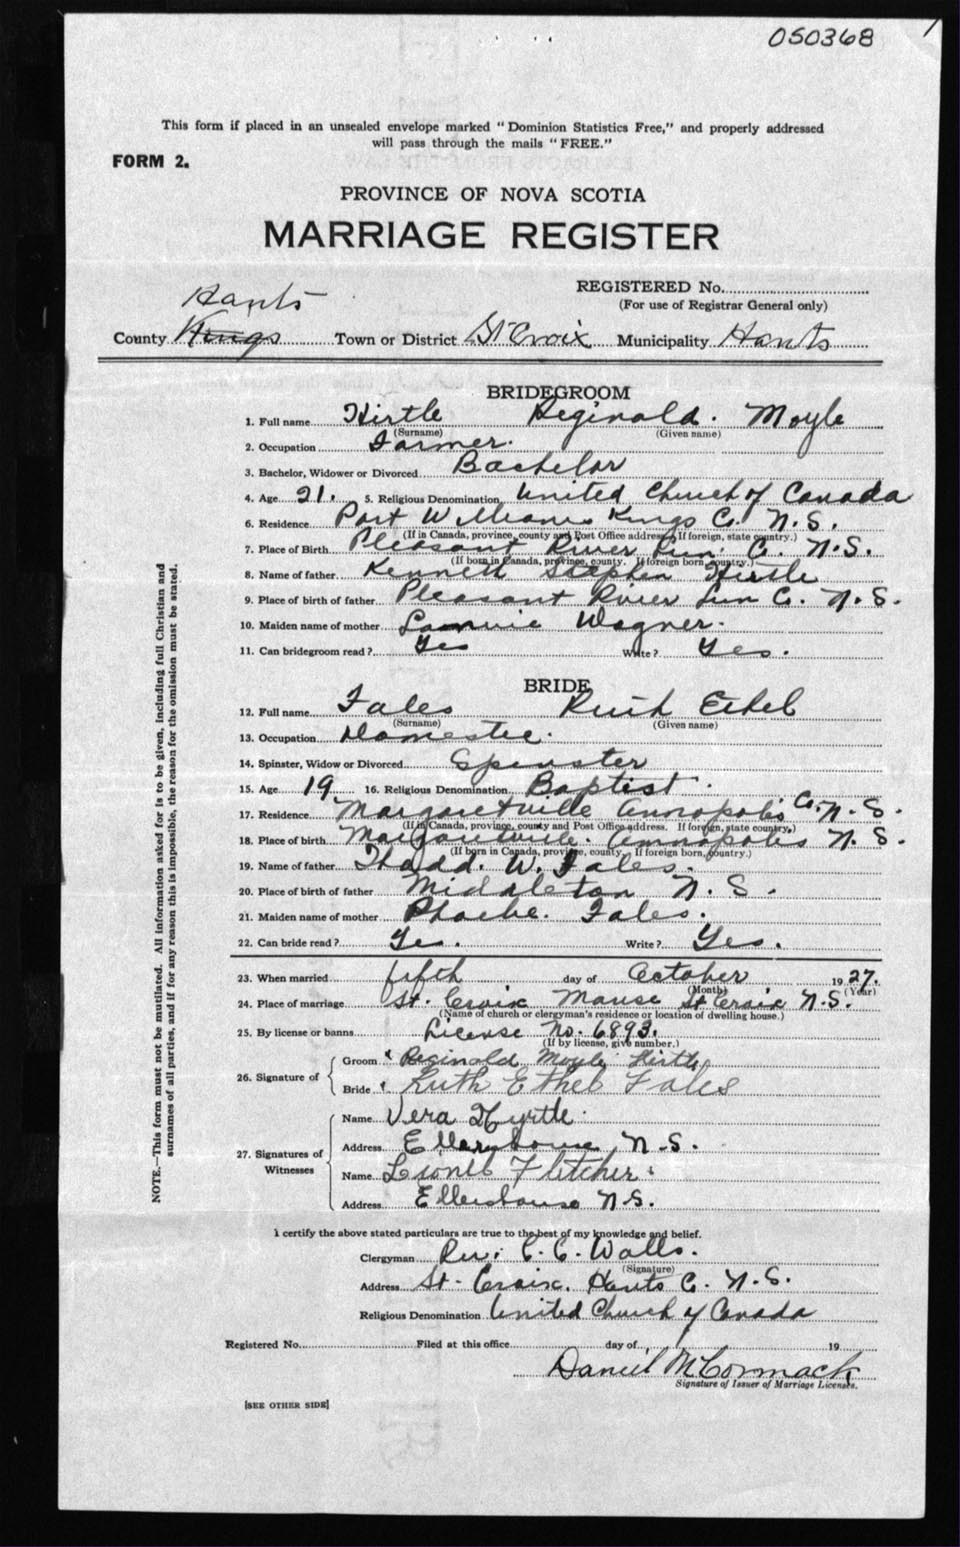 050368
This form if placed in an unsealed envelope marked "Dominion Statistics Free," and properly addressed
will pass through the mails "FREE."
FORM 2.
PROVINCE OF NOVA SCOTIA
MARRIAGE REGISTER
REGISTERED No.
(For use of Registrar General only)
Hants
County Kings Town or District St Croix Municipality Hants
BRIDEGROOM
1. Full name Hirtle Reginald. Moyle
(Surname) (Given name)
2. Occupation Farmer.
3. Bachelor, Widower or Divorced Bachelor
4. Age 21. 5. Religious Denomination United Church of Canada
6. Residence Port Williams Kings Co. N.S.
(If in Canada, province, county and Post Office address. If foreign, state country.)
7. Place of Birth Pleasant River Lun. Co. N.S.
(If born in Canada, province, county. If foreign born, country.)
8. Name of father Kenneth Stephen Hirtle
9. Place of birth of father Pleasant River Lun Co. N.S.
10. Maiden name of mother Wagner.
11. Can bridegroom read? Yes Write? Yes.
BRIDE
12. Full name Fales Ruth Ethel
(Surname) (Given name)
13. Occupation Domestic.
14. Spinster, Widow or Divorced Spinster
15. Age 19 16. Religious Denomination Baptist.
17. Residence Margaretville Annapolis Co. N.S.
(If in Canada, province, county and Post Office address. If foreign, state country.)
18. Place of birth Margaretville Annapolis N.S.
(If born in Canada, province, county. If foreign born, country.)
19. Name of father Thadd. W. Fales.
20. Place of birth of father Middleton N.S.
21. Maiden name of mother Phoebe. Fales.
22. Can bride read? Yes. Write? Yes.
23. When married fifth day of October 1927.
(Month) (Year)
24. Place of marriage St. Croix Manse St Croix N.S.
(Name of church or clergyman's residence or location of dwelling house.)
25. By license or banns License No. 6893.
(If by license, give number.)
26. Signature of
Groom Reginald Moyle Hirtle
Bride Ruth Ethel Fales
27. Signatures of Witnesses
Name Vera Myrtle
Address Ellershouse N.S.
Name Lionel Fletcher
Address Ellershouse N.S.
I certify the above stated particulars are true to the best of my knowledge and belief.
Clergyman Rev. C. C. Walls.
(Signature)
Address St. Croix, Hants Co. N.S.
Religious Denomination United Church of Canada
Registered No. Filed at this office day of 19
Daniel McCormack
Signature of Issuer of Marriage Licenses.
[SEE OTHER SIDE]
NOTE.—This form must not be mutilated. All information asked for is to be given, including full Christian and
surnames of all parties, and if for any reason this is impossible, the reason for the omission must be stated.